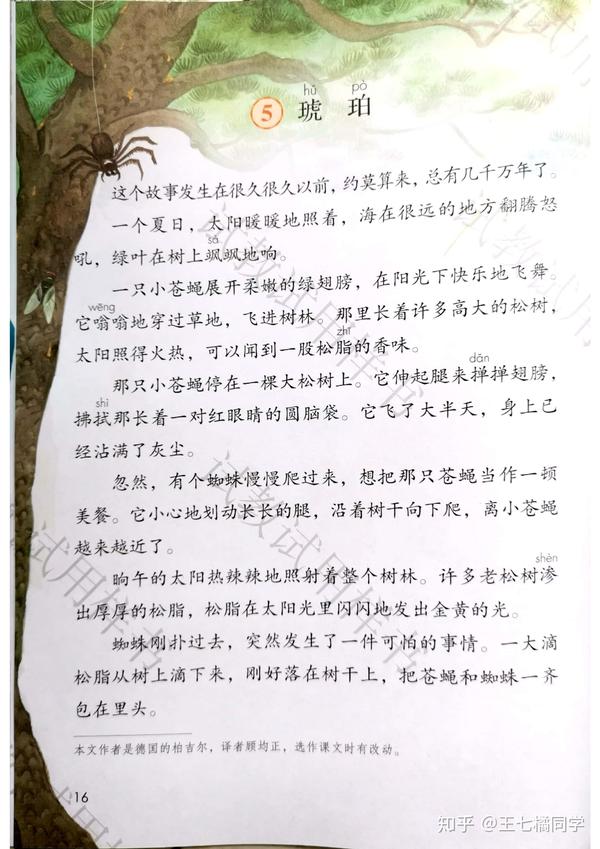 hǔ pò
⑤ 琥 珀
这个故事发生在很久很久以前，约莫算来，总有几千万年了。
一个夏日，太阳暖暖地照着，海在很远的地方翻腾怒
sà
吼，绿叶在树上飒飒地响。
一只小苍蝇展开柔嫩的绿翅膀，在阳光下快乐地飞舞。
wēng
它嗡嗡地穿过草地，飞进树林。那里长着许多高大的松树，
zhī
太阳照得火热，可以闻到一股松脂的香味。
dǎn
那只小苍蝇停在一棵大松树上。它伸起腿来掸掸翅膀，
shì
拂拭那长着一对红眼睛的圆脑袋。它飞了大半天，身上已
经沾满了灰尘。
忽然，有个蜘蛛慢慢爬过来，想把那只苍蝇当作一顿
美餐。它小心地划动长长的腿，沿着树干向下爬，离小苍蝇
越来越近了。
shèn
晌午的太阳热辣辣地照射着整个树林。许多老松树渗
出厚厚的松脂，松脂在太阳光里闪闪地发出金黄的光。
蜘蛛刚扑过去，突然发生了一件可怕的事情。一大滴
松脂从树上滴下来，刚好落在树干上，把苍蝇和蜘蛛一齐
包在里头。
本文作者是德国的柏吉尔，译者顾均正，选作课文时有改动。
16
知乎 @王七橘同学
试教试用样书
试教试用样书
试教试用样书